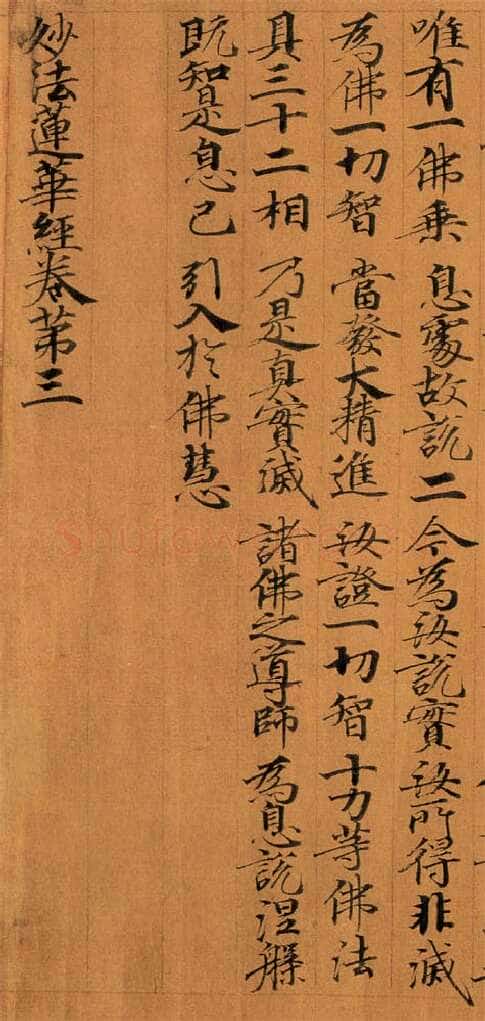 唯有一佛乗 息處故說二 今為汝說實 汝所得非滅
為佛一切智 當發大精進 汝證一切智 十力等佛法
具三十二相 乃是真實滅 諸佛之導師 為息說涅槃
既知是息已 引入於佛慧
妙法蓮華經卷第三